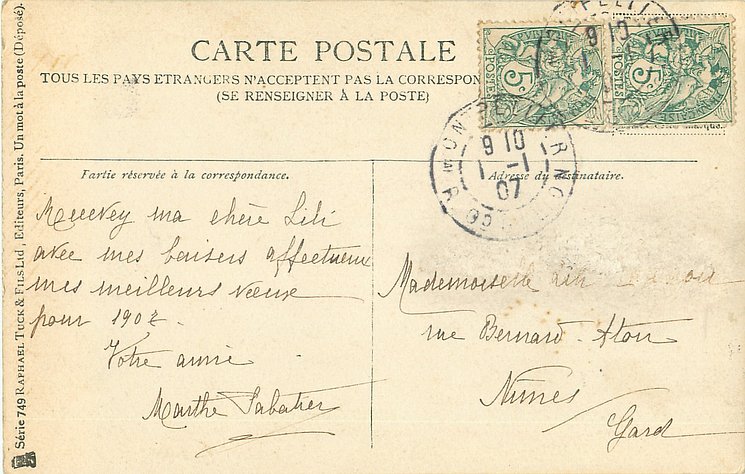 CARTE POSTALE
TOUS LES PAYS ETRANGERS N'ACCEPTENT PAS LA CORRESPON
(SE RENSEIGNER À LA POSTE)
POSTES
5c
POSTES
5c
9 10
9 10
1 - 1
07
Partie réservée à la correspondance.
Adresse du destinataire.
ma chère Lili
avec mes baisers affectueux
mes meilleurs vœux
pour 1907.
Votre amie
Marthe Sabatier
Mademoiselle
rue Bernard-Aton
Nimes
Gard
Série 749 RAPHAEL TUCK & FILS Ltd, Editeurs, Paris. Un mot à la poste (Déposé).